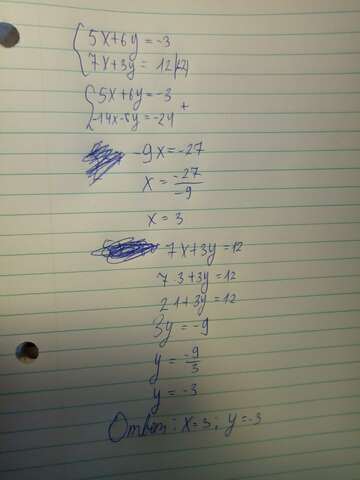 5x+6y=-3
7x+3y=12|(-2)
5x+6y=-3
-14x-6y=-24 +
-9x=-27
x=-27/-9
x=3
7x+3y=12
7·3+3y=12
21+3y=12
3y=-9
y=-9/3
y=-3
Ответ: x=3; y=-3